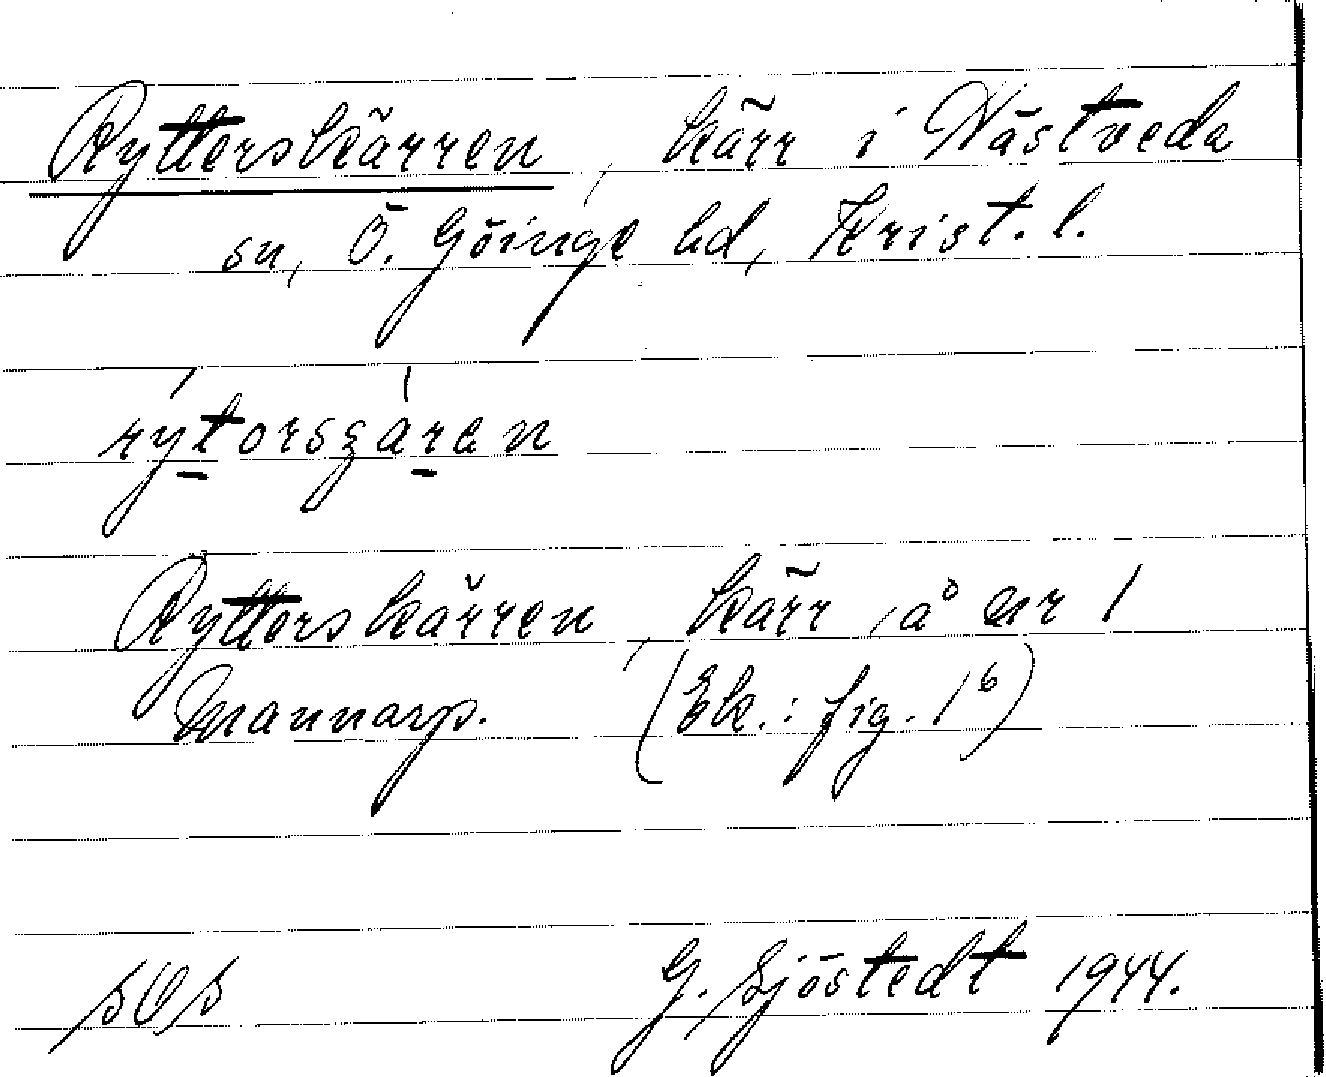 Ryttersbärren, kärr i Nästveda
sn, Ö. Göinge hd, Krist. l.
rýtorsgáren
Rytterskärren, kärr, å nr 1
Mannarp. (Ek.: fig. 1⁶)
SOS G. Sjöstedt 1944.